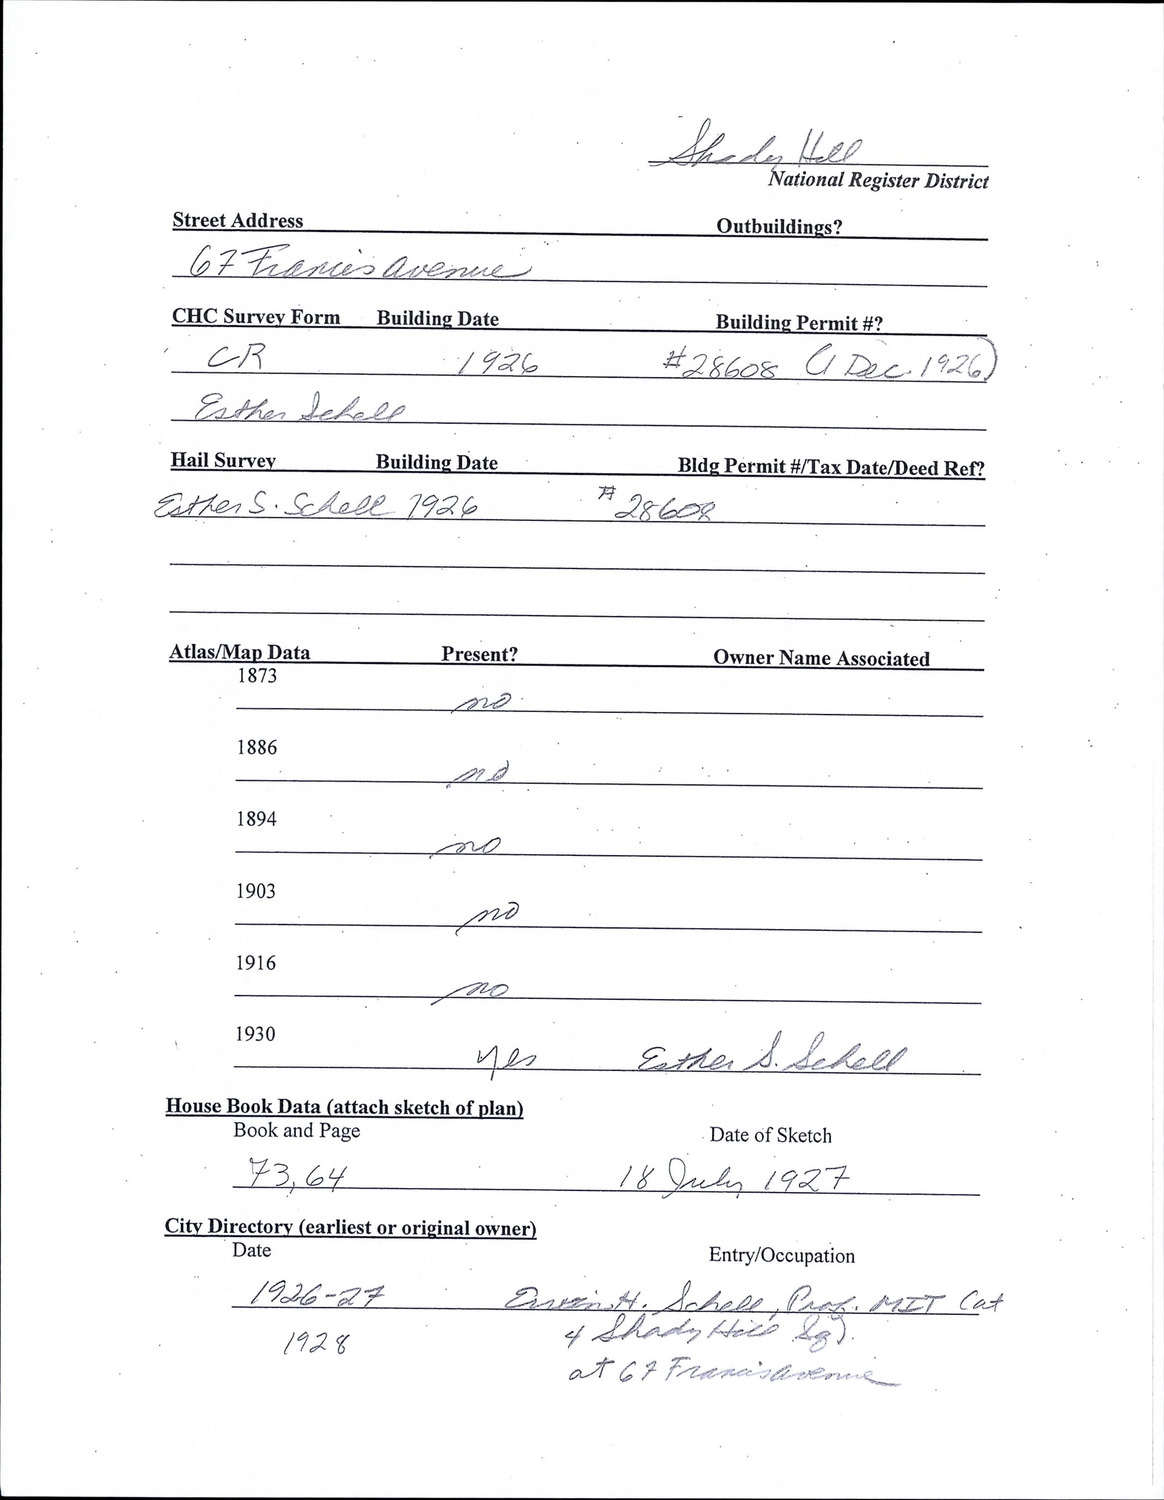 Shady Hill
National Register District
Street Address Outbuildings?
67 Francis Avenue
CHC Survey Form Building Date Building Permit #?
CR 1926 #28608 (1 Dec. 1926)
Esther Schell
Hail Survey Building Date Bldg Permit #/Tax Date/Deed Ref?
Esther S. Schell 1926 #28608
Atlas/Map Data Present? Owner Name Associated
1873
no
1886
no
1894
no
1903
no
1916
no
1930
yes Esther S. Schell
House Book Data (attach sketch of plan)
Book and Page Date of Sketch
73, 64 18 July 1927
City Directory (earliest or original owner)
Date Entry/Occupation
1926-27 Erwin H. Schell, Prof. MIT (at
1928 4 Shady Hill Sq).
at 67 Francis Avenue